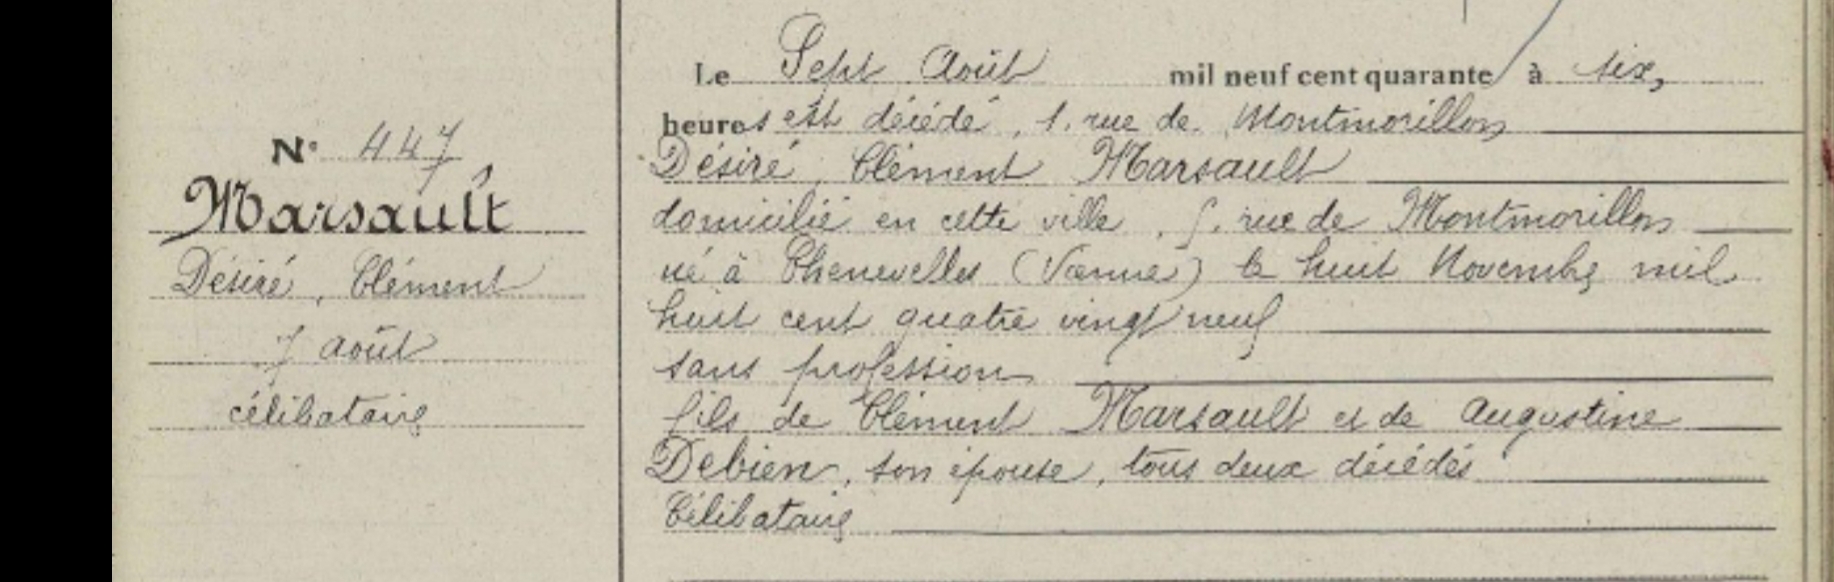 N° 447
Marsault
Désiré, Clément
7 août
célibataire
Le Sept Août mil neuf cent quarante à six,
heures est décédé, 1. rue de Montmorillon
Désiré, Clément Marsault
domicilié en cette ville, rue de Montmorillon
né à Chenevelles (Vienne) le huit Novembre mil
huit cent quatre vingt neuf
sans profession
fils de Clément Marsault et de Augustine
Debien, son épouse, tous deux décédés
Célibataire